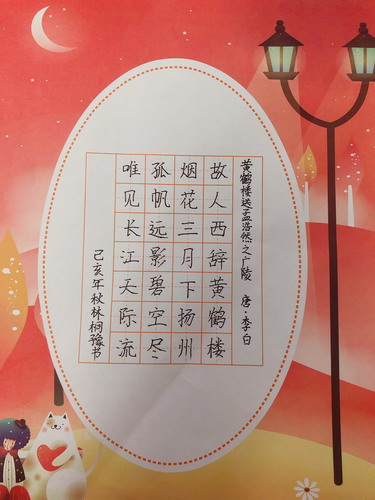 黄鹤楼送孟浩然之广陵 唐·李白
故人西辞黄鹤楼
烟花三月下扬州
孤帆远影碧空尽
唯见长江天际流
己亥年秋林桐豫书